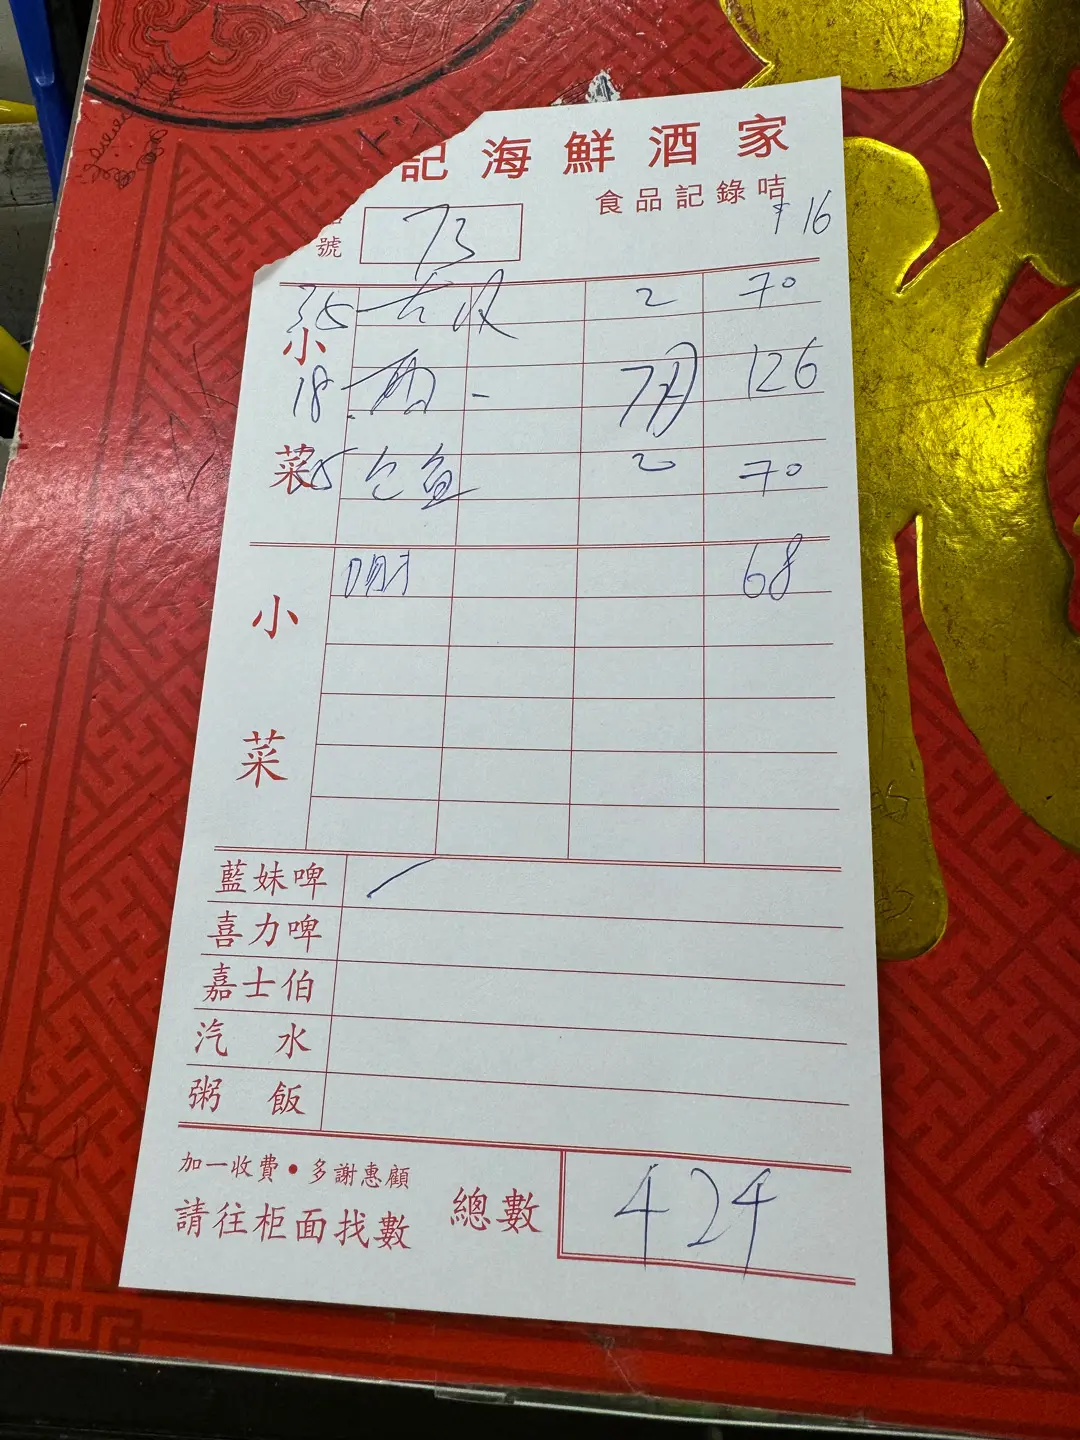 記海鮮酒家
食品記錄咭
號 73
16
35 2 70
小
18 126
菜 2 70
68
小
菜
藍妹啤
喜力啤
嘉士伯
汽水
粥飯
加一收費•多謝惠顧
請往柜面找數
總數 424